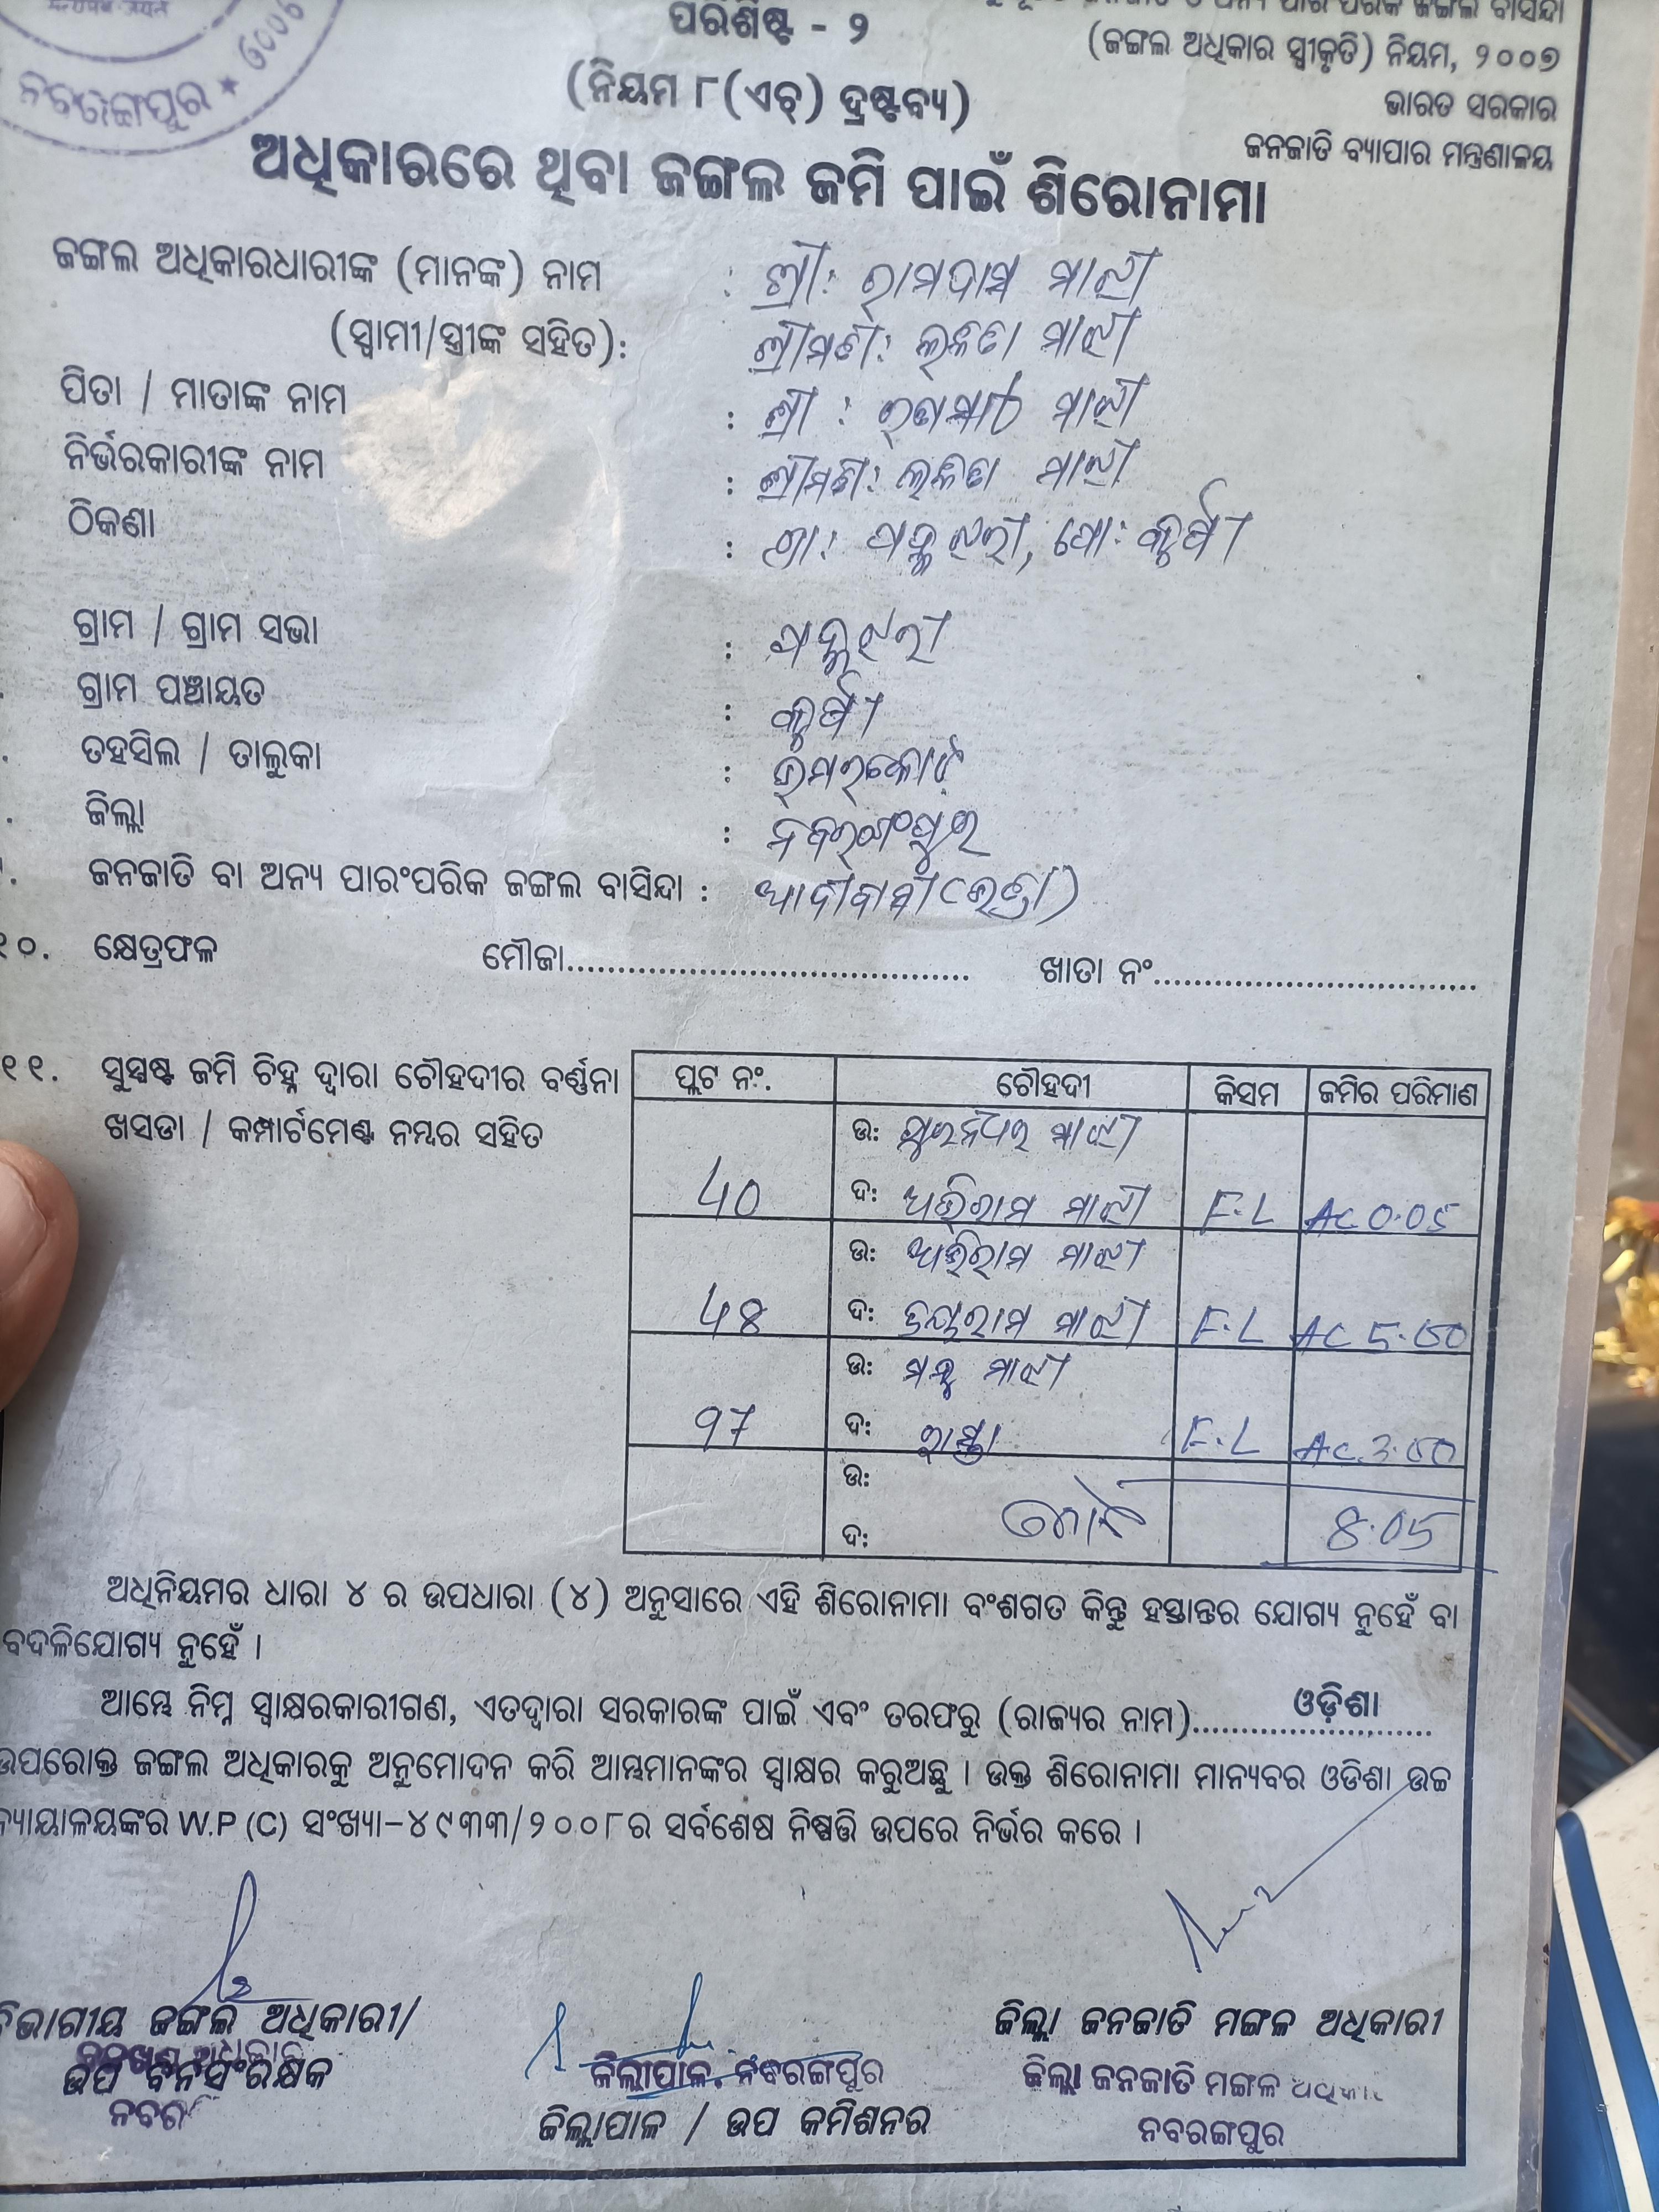 ନବରଙ୍ଗପୁର *
ପରିଶିଷ୍ଟ - ୨
(ଜଙ୍ଗଲ ଅଧିକାର ସ୍ୱୀକୃତି) ନିୟମ, ୨୦୦୭
(ନିୟମ ୮(ଏଚ୍) ଦ୍ରଷ୍ଟବ୍ୟ)
ଭାରତ ସରକାର
ଜନଜାତି ବ୍ୟାପାର ମନ୍ତ୍ରଣାଳୟ
ଅଧିକାରରେ ଥିବା ଜଙ୍ଗଲ ଜମି ପାଇଁ ଶିରୋନାମା
ଜଙ୍ଗଲ ଅଧିକାରଧାରୀଙ୍କ (ମାନଙ୍କ) ନାମ : ଶ୍ରୀ: ରାମଦାସ ମାଝୀ
(ସ୍ୱାମୀ/ସ୍ତ୍ରୀଙ୍କ ସହିତ): ଶ୍ରୀମତୀ: ଲଳିତା ମାଝୀ
ପିତା / ମାତାଙ୍କ ନାମ : ଶ୍ରୀ : ମାଝୀ
ନିର୍ଭରକାରୀଙ୍କ ନାମ : ଶ୍ରୀମତୀ: ଲଳିତା ମାଝୀ
ଠିକଣା : ଗ୍ରା: ପୋ: କୁର୍ଷୀ
ଗ୍ରାମ / ଗ୍ରାମ ସଭା :
ଗ୍ରାମ ପଞ୍ଚାୟତ : କୁର୍ଷୀ
ତହସିଲ / ତାଲୁକା : ଉମରକୋଟ
ଜିଲ୍ଲା : ନବରଂଗପୁର
ଜନଜାତି ବା ଅନ୍ୟ ପାରଂପରିକ ଜଙ୍ଗଲ ବାସିନ୍ଦା : ଆଦୀବାସୀ
୧୦. କ୍ଷେତ୍ରଫଳ ମୌଜା........................................ ଖାତା ନଂ................................
୧୧. ସୁସ୍ପଷ୍ଟ ଜମି ଚିହ୍ନ ଦ୍ୱାରା ଚୌହଦୀର ବର୍ଣ୍ଣନା
ଖସଡା / କମ୍ପାର୍ଟମେଣ୍ଟ ନମ୍ବର ସହିତ
ପ୍ଲଟ ନଂ. ଚୌହଦୀ କିସମ ଜମିର ପରିମାଣ
ଉ: ମାଝୀ
40 ଦ: ଅଭିରାମ ମାଝୀ F.L Ac 0.05
ଉ: ଅଭିରାମ ମାଝୀ
48 ଦ: ଜୟରାମ ମାଝୀ F.L Ac 5.00
ଉ: ମାଝୀ
97 ଦ: ରାସ୍ତା F.L Ac. 3.00
ଉ:
ଦ: ମୋଟ 8.05
ଅଧିନିୟମର ଧାରା ୪ ର ଉପଧାରା (୪) ଅନୁସାରେ ଏହି ଶିରୋନାମା ବଂଶଗତ କିନ୍ତୁ ହସ୍ତାନ୍ତର ଯୋଗ୍ୟ ନୁହେଁ ବା
ବଦଳିଯୋଗ୍ୟ ନୁହେଁ ।
ଆମ୍ଭେ ନିମ୍ନ ସ୍ୱାକ୍ଷରକାରୀଗଣ, ଏତଦ୍ୱାରା ସରକାରଙ୍କ ପାଇଁ ଏବଂ ତରଫରୁ (ରାଜ୍ୟର ନାମ)......ଓଡ଼ିଶା......
ଉପରୋକ୍ତ ଜଙ୍ଗଲ ଅଧିକାରକୁ ଅନୁମୋଦନ କରି ଆମ୍ଭମାନଙ୍କର ସ୍ୱାକ୍ଷର କରୁଅଛୁ । ଉକ୍ତ ଶିରୋନାମା ମାନ୍ୟବର ଓଡିଶା ଉଚ୍ଚ
ନ୍ୟାୟାଳୟଙ୍କର W.P (C) ସଂଖ୍ୟା-୪୯୩୩/୨୦୦୮ର ସର୍ବଶେଷ ନିଷ୍ପତ୍ତି ଉପରେ ନିର୍ଭର କରେ ।
ବିଭାଗୀୟ ଜଙ୍ଗଲ ଅଧିକାରୀ/
ଉପ ବନସଂରକ୍ଷକ
ଜିଲ୍ଲାପାଳ, ନବରଙ୍ଗପୁର
ଜିଲ୍ଲାପାଳ / ଉପ କମିଶନର
ଜିଲ୍ଲା ଜନଜାତି ମଙ୍ଗଳ ଅଧିକାରୀ
ଜିଲ୍ଲା ଜନଜାତି ମଙ୍ଗଳ
ନବରଙ୍ଗପୁର